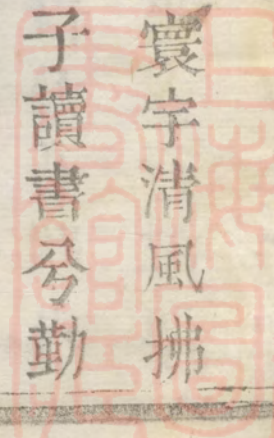 寰宇清風拂
子讀書兮勤